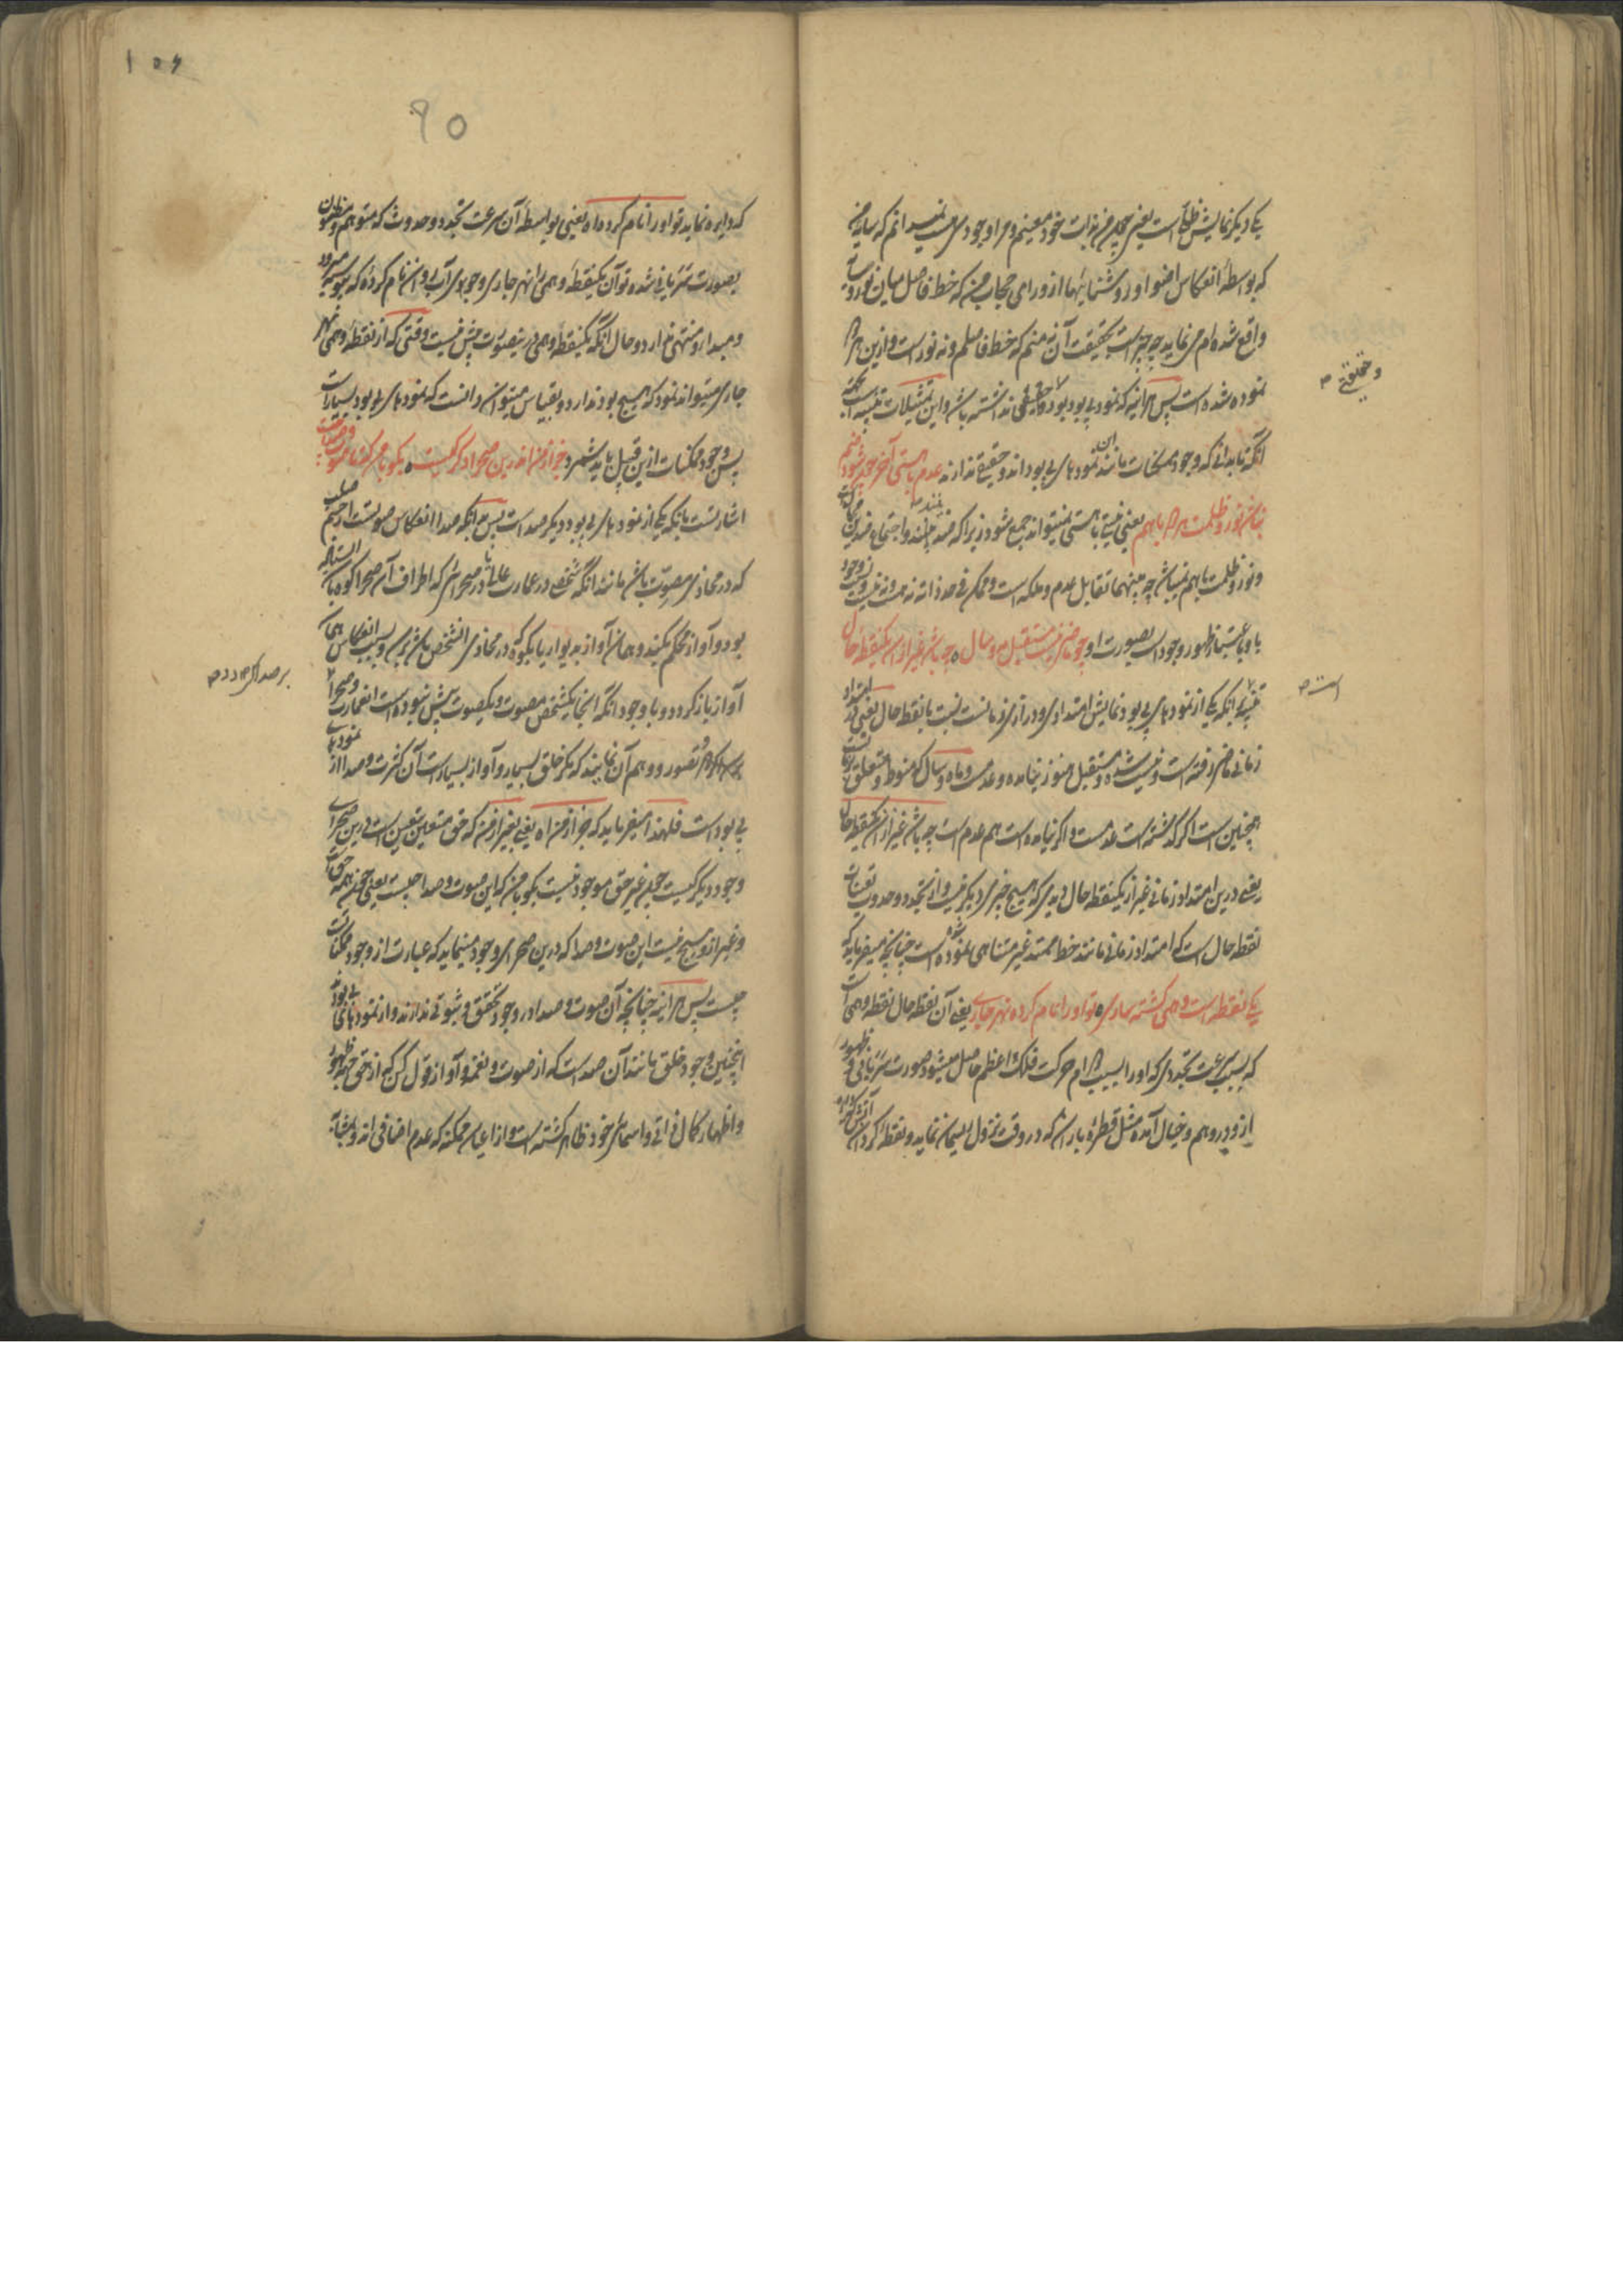 یکی دیگر نمایش ظل است یعنی چون من بذات خود معینم و مرا وجودی نیست نمیدانم که سایه من
که بواسطهٔ انعکاس اضوا و روشنائیها از ورای حجاب من که خط فاصل میان نور و
واقع شده‌ام می نماید چه چیز است بحقیقت آن نه منم که خط فاصلم و نه نور است و ازین هر
نموده شده است پس هر آینه که نمود بی بود بود و حقیقی نداشته باشد و این تمثیلات تنبیه است
و تحقیق
آنکه تا بدانی که وجود ممکنات مانند این نمودهای بی بود اند و حقیقتی ندارند عدم با هستی آخر چون شود ضم
نباشد نور و ظلمت هر دو با هم یعنی نیستی با هستی نمیتواند جمع شود زیرا که ضد یکدیگرند و اجتماع ضدین محال است
و نور و ظلمت با هم نمیباشد چه بینهما تقابل عدم و ملکه است و ممکن فی حد ذاته نه هست و نه نیست
با وی باعتبار ظهور وجود است بصورت او چو ماضی نیست مستقبل مه و سال چه باشد غیر ازان یک نقطه حال
است
تنبیه بانکه یکی از نمودهای بی بود نمایش امتدادی و درازی زمانست نسبت با نقطه حال یعنی در
زمانی ماضی رفته است و نیست شده و مستقبل هنوز نیامده و عدم است و ماه و سال که منوط و متعلق
همچنین است اگر گذشته است عدمست و اگر نیامده است هم عدم است چه باشد غیر ازان یک نقطه حال
یعنی درین امتداد زمانی غیر از یک نقطه حال دیدی که هیچ چیزی دیگر نیست و از تجدد و حدوث تعینات
نقطه حال است که امتداد زمانی مانند خط ممتد غیر متناهی نموده شده است چنانچه میفرماید که
یکی نقطه است وهمی گشته ساری تو او را نام کرده نهر جاری یعنی آن نقطه حال نقطه وهمی است
که بسبب سرعت تجددی که او را بسبب دوام حرکت فلک اعظم حاصل میشود صورت سریانی و ظهور
از و در وهم و خیال آمده مثل قطره باران که در وقت نزول ریسمان نماید و نقطه گردان آتش
90
که دایره نماید تو او را نام کرده اه یعنی بواسطه آن سرعت تجدد و حدوث که متوهم و مظنون
بصورت سریانی شده تو آن یک نقطه وهمی را نهر جاری و جوی آب روان نام کرده که پیوسته میرود
و مبدا و منتهی ندارد و حال آنکه یک نقطه وهمی درین صورت بیش نیست وقتی که از نقطه وهمی نهر
جاری میتواند نمود که هیچ بود ندارد و بقیاس میتوان دانست که نمودهای بی بود بسیار است
پس وجود ممکنات ازین قبیل باید شمرد جز از من اندرین صحرا دگر کیست بگو با من که تا صوت و صدا چیست
اشارتست بانکه یکی از نمودهای بی بود دیگر صداست پس بدانکه صدا انعکاس صوتست از جسم صلب
که در محاذی مصوت باشد مانند آنکه شخصی در عمارت عالی یا در صحرائی که اطراف آن صحرا کوه باشد
بود و آواز محکم بکند و همان آواز بدیوار یا بکوه که در محاذی آن شخص باشد برسد و بسبب انعکاس همان
آواز باز گردد و با وجود آنکه آنجا یک شخص مصوت و یک صوت بیش نبوده است از عمارت و صحرا
بر صداگردد
تصور و وهم آن نمایند که مگر خلق بسیار و آواز بسیار است آن کثرت و صدا از نمودهای
بی بود است فلهذا میفرماید که جز از من اه یعنی بغیر از من که حق متعین بتعین است درین صحرای
وجود دیگر کیست چون غیر حق موجود نیست بگو با من که این صوت و صدا چیست یعنی چون همه حق است
و غیر او هیچ نیست این صوت و صدا که درین صحرای وجود مینماید که عبارت از وجود ممکنات است
چیست پس هر آینه چنانچه آن صوت و صدا در وجود تحقق و ثبوتی ندارند و از نمودهای بی بود
اینچنین وجود خلق مانند آن صداست که از صوت و نغمه و آواز قول کن که از حق جهت ظهور
و اظهار کمال ذاتی و اسمائی خود ظاهر گشته است و از اعیان ممکنه که عدم اضافی اند و بمثابه